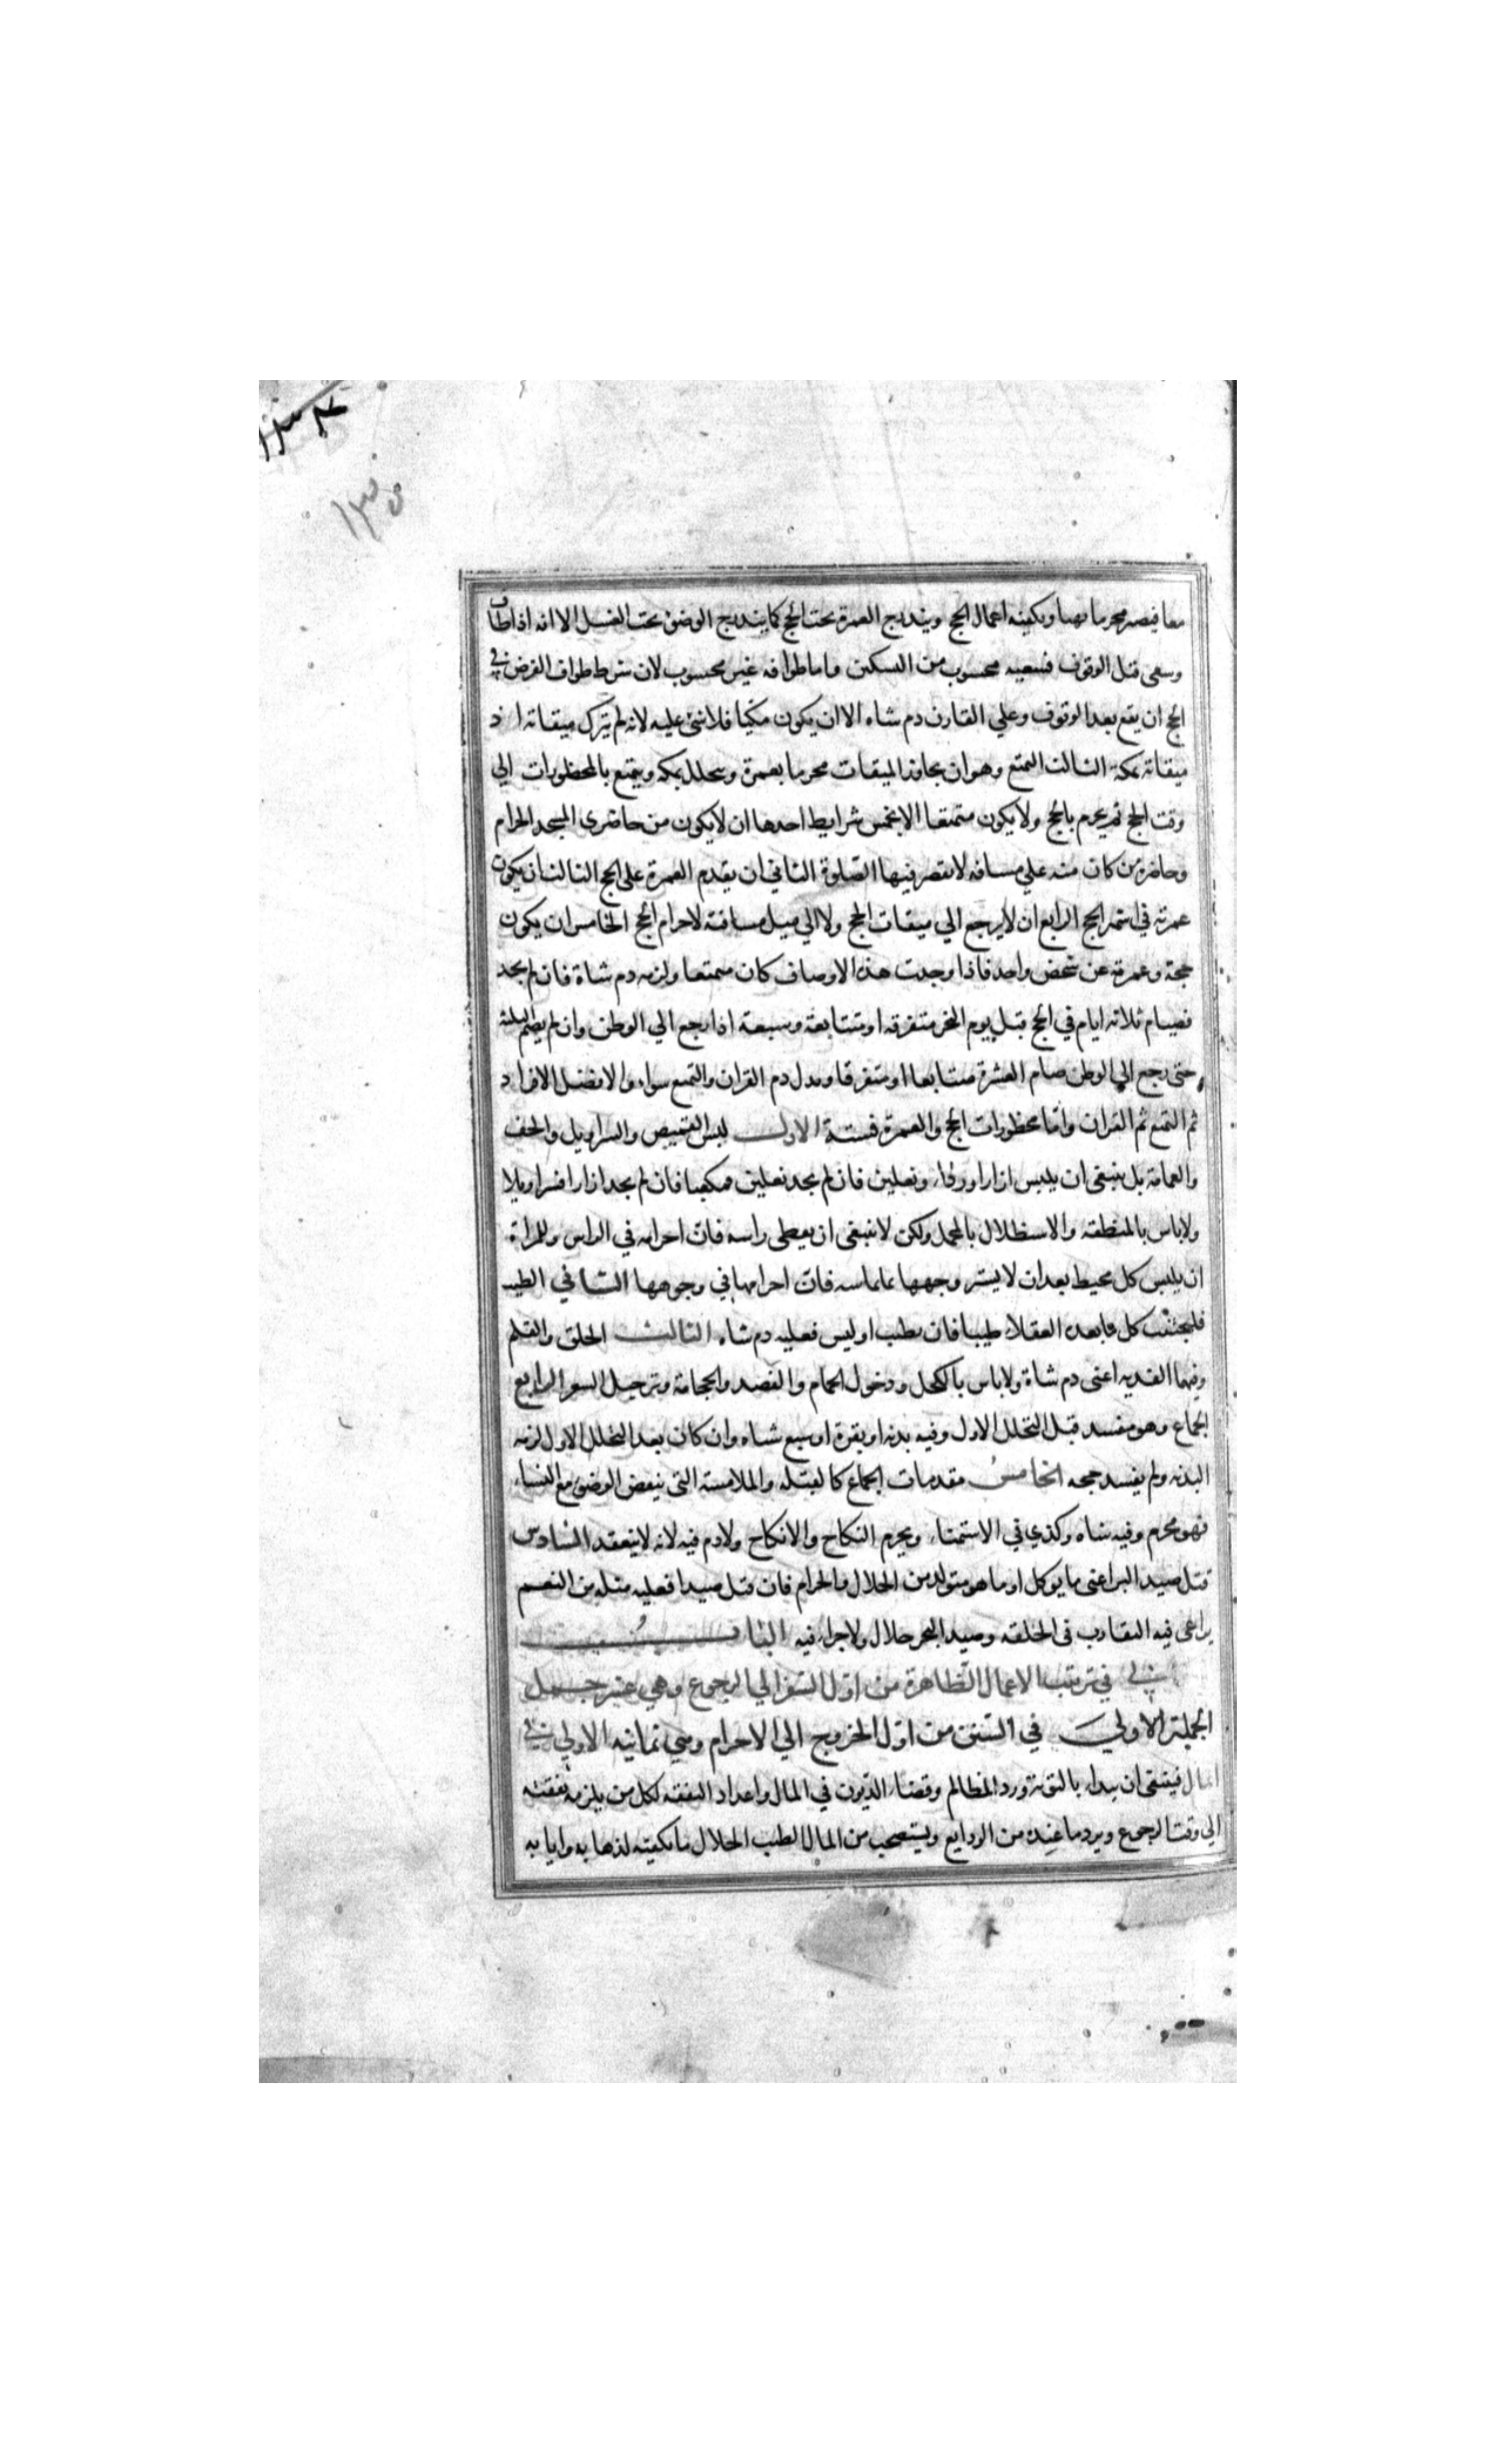 ١٣٤
١٣٥
معا فيصير محرما بهما ويكفيه اعمال الحج ويندرج العمرة تحت الحج كما يندرج الوضوء تحت الغسل الا انه اذا طاف
وسعى قبل الوقوف فسعيه محسوب من النسكين واما طوافه غير محسوب لان شرط طواف الفرض في
الحج ان يقع بعد الوقوف وعلي القارن دم شاه الا ان يكون مكيا فلا شئ عليه لانه لم يترك ميقاته اذ
ميقاته بمكة الثالث التمتع وهو ان يجاوز الميقات محرما بعمرة ويتحلل بمكه ويتمتع بالمحظورات الي
وقت الحج ثم يحرم بالحج ولا يكون متمتعا الا بخمس شرايط احدها ان لا يكون من حاضرى المسجد الحرام
وحاضره من كان منه علي مسافه لا يقصر فيها الصلوة الثاني ان يقدم العمرة على الحج الثالث ان يكون
عمرته في اشهر الحج الرابع ان لا يرجع الي ميقات الحج ولا الي ميل مسافته لاحرام الحج الخامس ان يكون
حجة وعمرة عن شخص واحد فاذا وجدت هذه الاوصاف كان متمتعا ولزمه دم شاة فان لم يجد
فصيام ثلاثه ايام في الحج قبل يوم النحر متفرقه او متتابعة وسبعة اذا رجع الي الوطن وان لم يصم الثلثه
حتى رجع الي الوطن صام العشرة متتابعا او متفرقا وبدل دم القران والتمتع سواء والافضل الافراد
ثم التمتع ثم القران واما محظورات الحج والعمرة فستة الاول لبس القميص والسراويل والخف
والعمامة بل ينبغى ان يلبس ازارا ورداء ونعلين فان لم يجد نعلين فمكعبا فان لم يجد ازارا فسراويلا
ولا باس بالمنطقه والاستظلال بالمحمل ولكن لا ينبغى ان يغطى راسه فان احرامه في الراس وللمراة
ان يلبس كل مخيط بعد ان لا يستر وجهها بما يماسه فان احرامها في وجهها الثاني الطيب
فليجتنب كل ما يعده العقلاء طيبا فان تطيب او لبس فعليه دم شاه الثالث الحلق والقلم
وفيهما الفديه اعنى دم شاة ولا باس بالكحل ودخول الحمام والفصد والحجامة وترجيل الشعر الرابع
الجماع وهو مفسد قبل التحلل الاول وفيه بدنه او بقرة او سبع شياه وان كان بعد التحلل الاول لزمه
البدنه ولم يفسد حجه الخامس مقدمات الجماع كالقبله والملامسة التي ينقض الوضوء مع النساء
فهو محرم وفيه شاه وكذي في الاستمناء ويحرم النكاح والانكاح ولا دم فيه لانه لا ينعقد السادس
قتل صيد البر اعنى ما يوكل او ما هو متولد من الحلال والحرام فان قتل صيدا فعليه مثله من النعم
يراعى فيه التقارب في الخلقه وصيد البحر حلال ولا جزاء فيه الباب
في ترتيب الاعمال الظاهرة من اول السفر الي الرجوع وهي عشر جمل
الجملة الاولي في السنن من اول الخروج الي الاحرام وهي ثمانيه الاولي في
المال فينبغى ان يبداء بالتوبة ورد المظالم وقضاء الديون في المال واعداد النفقه لكل من يلزمه نفقته
الي وقت الرجوع ويرد ما عنده من الودايع ويستصحب من المال الطيب الحلال ما يكفيه لذهابه وايابه